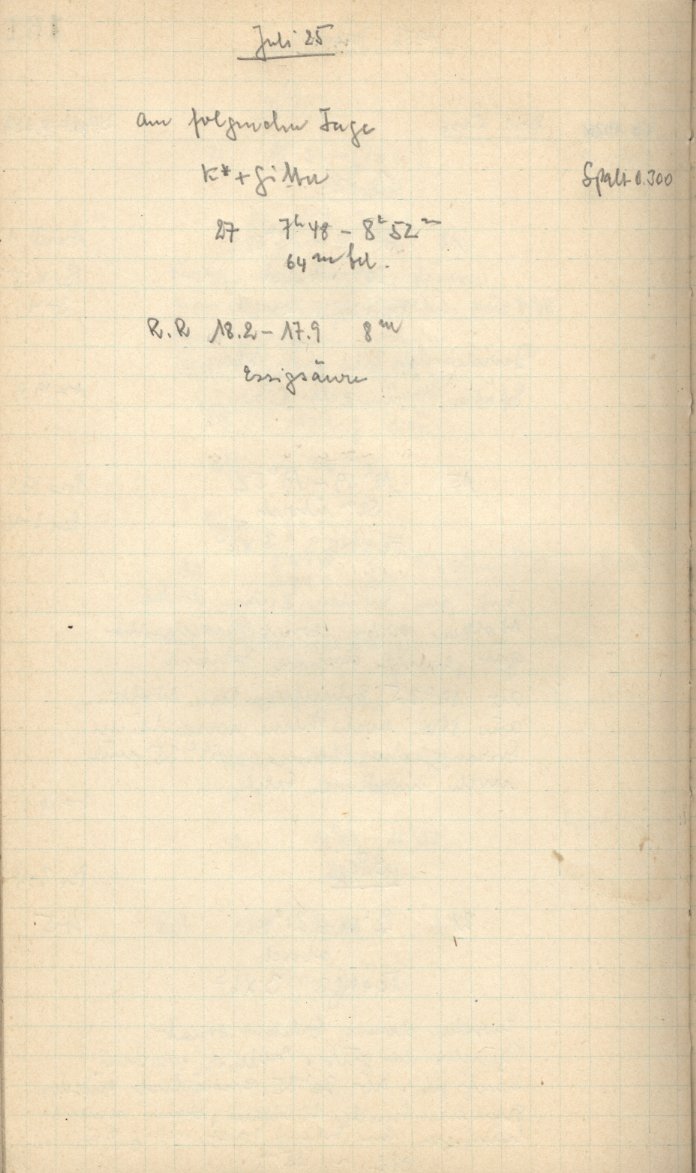 Juli 25
am folgenden Tage
K*+Gitter
Spalt 0.300
27 7ʰ48 – 8ʰ52ᵐ
64ᵐ bel.
R.R 18.2–17.9 8ᵐ
Essigsäure